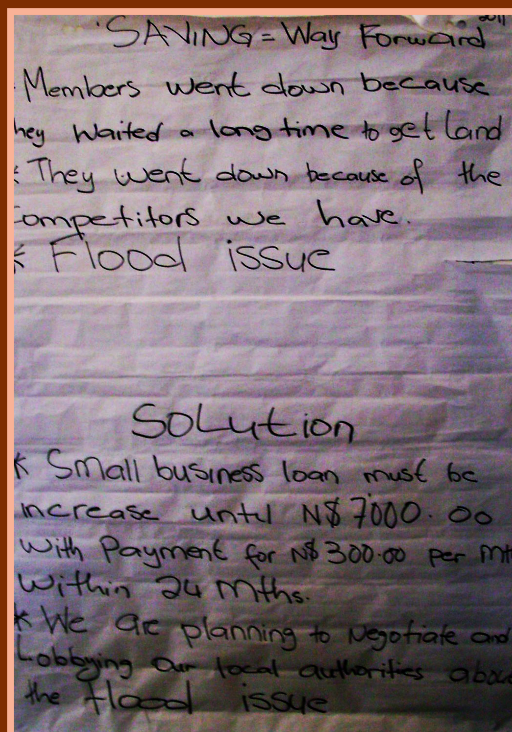 SAVING = Way Forward
Members went down because
hey waited a long time to get land
* They went down because of the
ompetitors we have.
* Flood issue
SOLution
* Small business loan must be
increase until N$ 7000.00
With Payment for N$ 300.00 per mt
Within 24 Mths.
* We are planning to Negotiate and
Lobbying Our local authorities abou
the flood issue